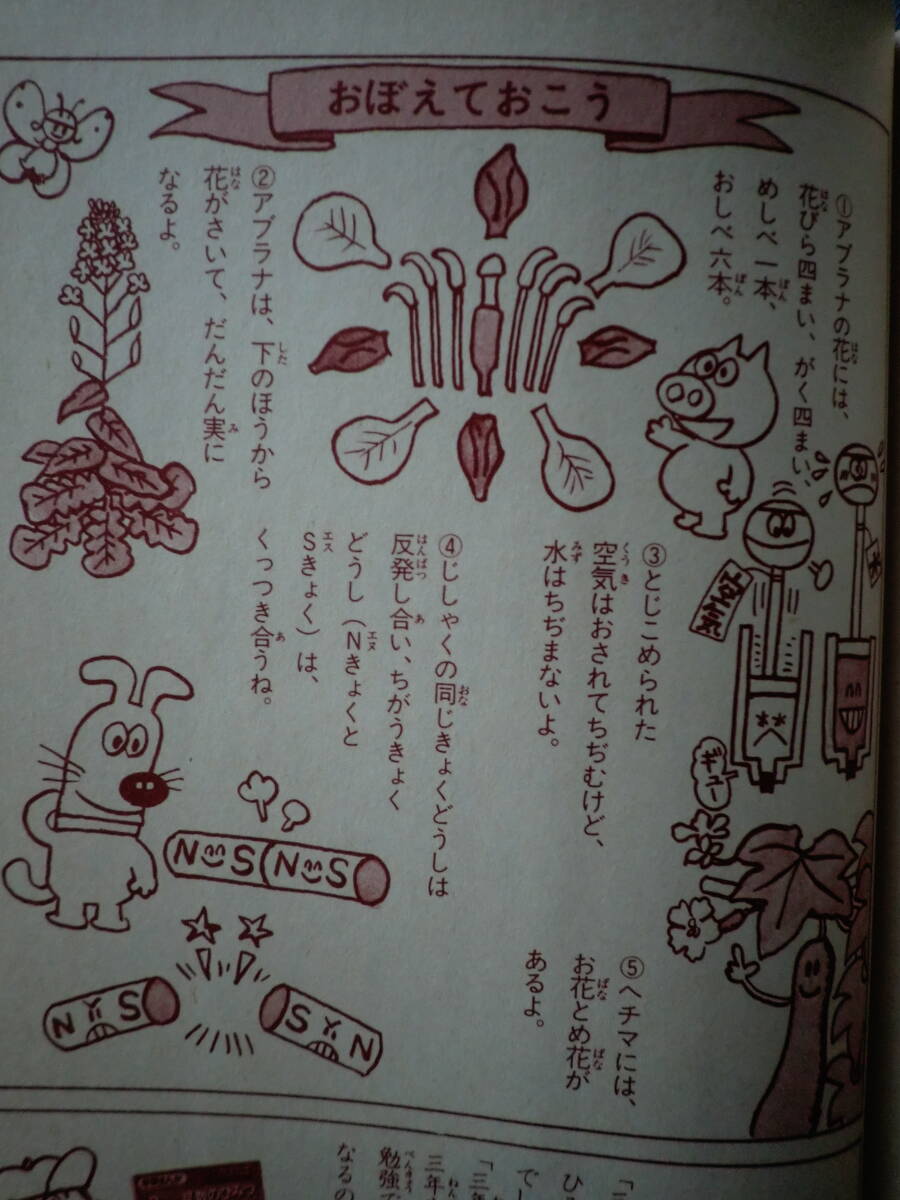 おぼえておこう
①アブラナの花には、
花びら四まい、がく四まい、
めしべ一本、
おしべ六本。
②アブラナは、下のほうから
花がさいて、だんだん実に
なるよ。
③とじこめられた
空気はおされてちぢむけど、
水はちぢまないよ。
空気
水
ギュー
④じしゃくの同じきょくどうしは
反発し合い、ちがうきょく
どうし（Nきょくと
Sきょく）は、
くっつき合うね。
N S N S
N S
S N
⑤ヘチマには、
お花とめ花が
あるよ。
ひ
でし
「三年
三年
勉強で
なるの